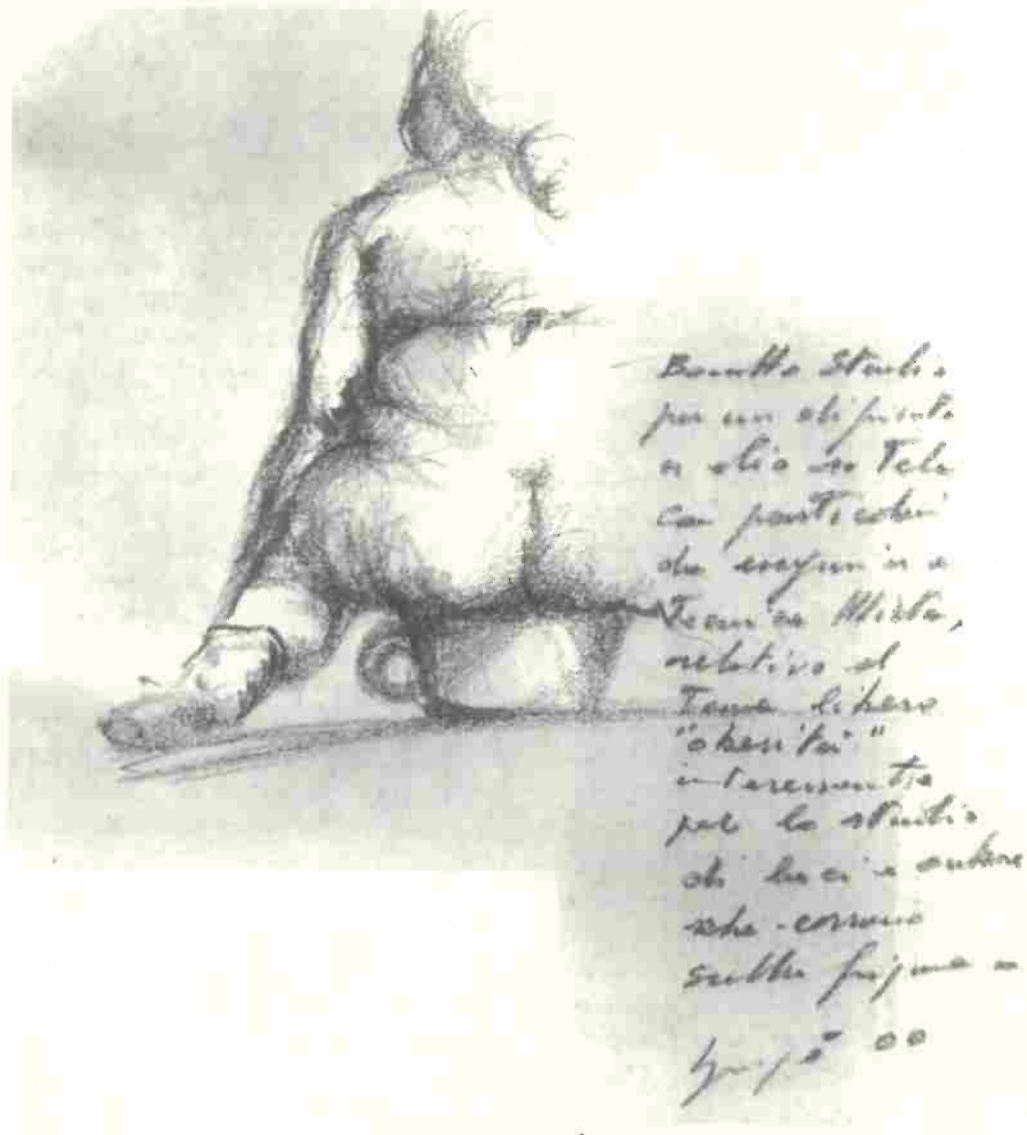 Bozzetto Studio
per un dipinto
a olio su Tela
con particolari
da eseguire a
Tecnica Mista,
relativo al
Tema libero
"obesità"
interessante
per lo studio
di luci e ombre
che corrono
sulla figura
00